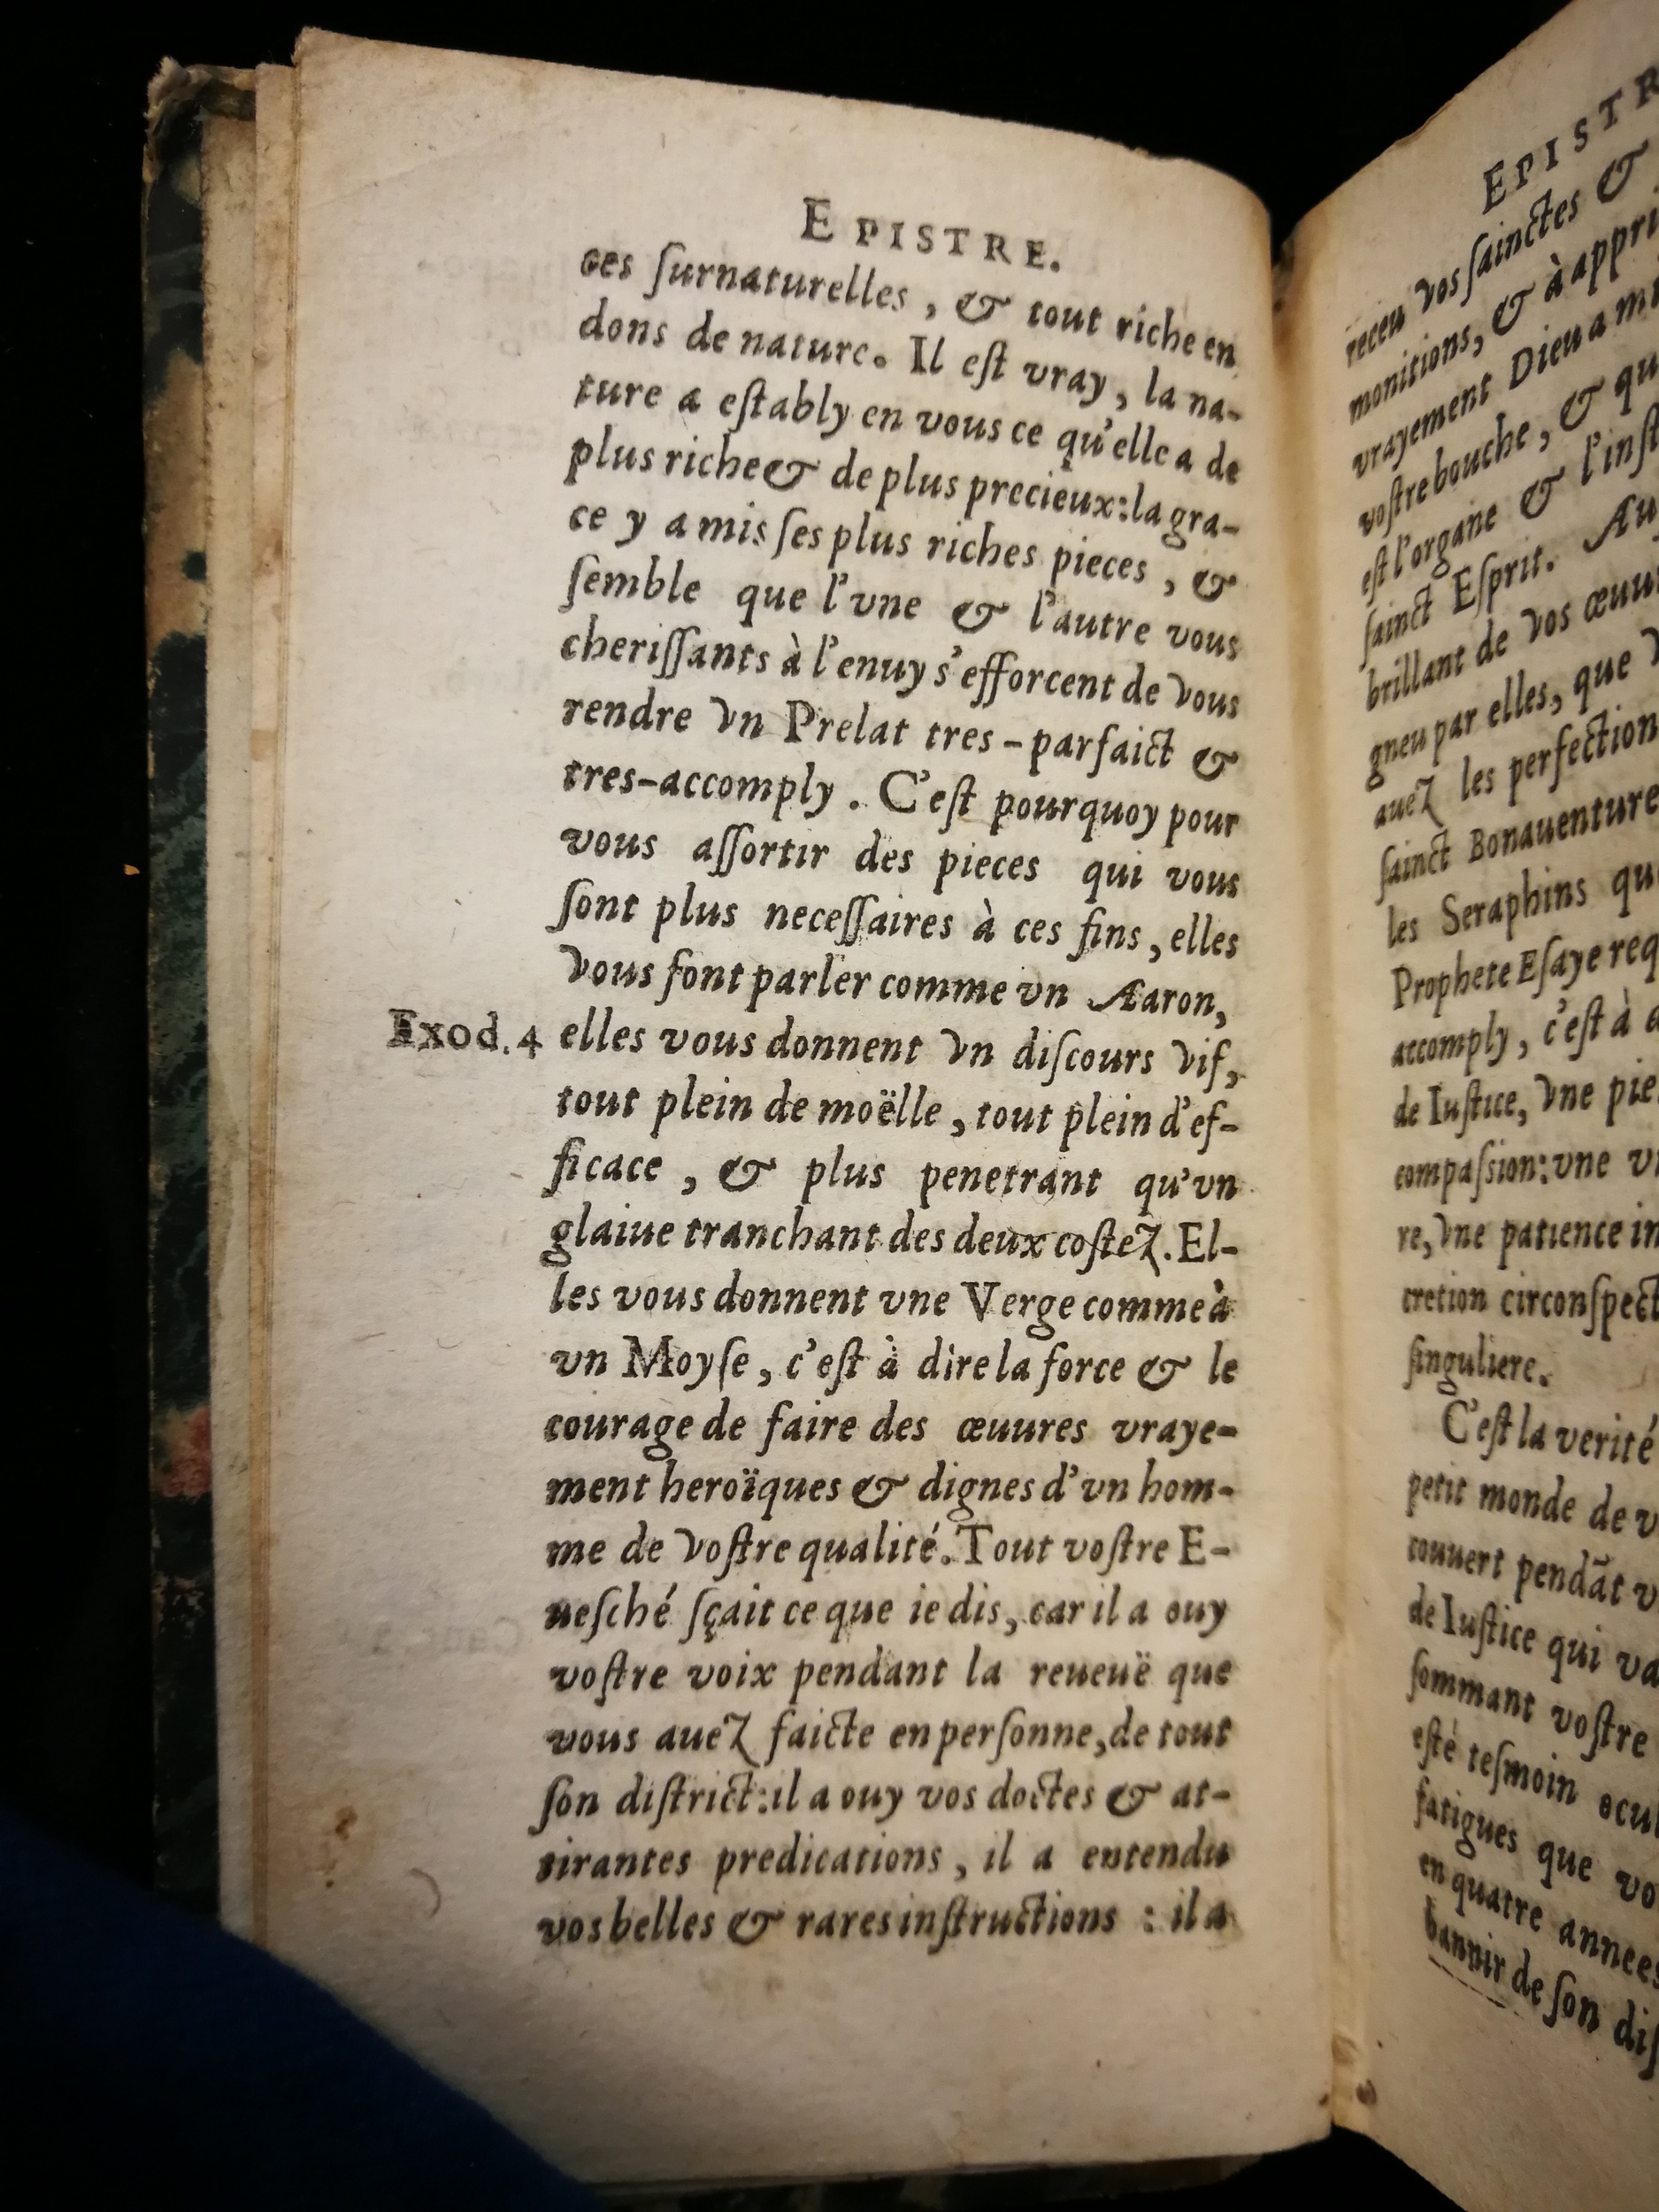 EPISTRE.
ces ſurnaturelles, & tout riche en
dons de nature. Il eſt vray, la na-
ture a eſtably en vous ce qu'elle a de
plus riche & de plus precieux: la gra-
ce y a mis ſes plus riches pieces, &
ſemble que l'vne & l'autre vous
cheriſſants à l'enuy s'efforcent de vous
rendre vn Prelat tres-parfaict &
tres-accomply. C'eſt pourquoy pour
vous aſſortir des pieces qui vous
ſont plus neceſſaires à ces fins, elles
vous font parler comme vn Aaron,
Exod. 4
elles vous donnent vn diſcours vif,
tout plein de moëlle, tout plein d'ef-
ficace, & plus penetrant qu'vn
glaiue tranchant des deux coſtez. El-
les vous donnent vne Verge comme à
vn Moyſe, c'eſt à dire la force & le
courage de faire des œuures vraye-
ment heroïques & dignes d'vn hom-
me de voſtre qualité. Tout voſtre E-
ueſché ſçait ce que ie dis, car il a ouy
voſtre voix pendant la reueuë que
vous auez faicte en perſonne, de tout
ſon diſtrict: il a ouy vos doctes & at-
tirantes predications, il a entendu
vos belles & rares inſtructions : il a
EPISTR
receu vos ſainctes &
monitions, & à appri
vrayement Dieu a mi
voſtre bouche, & qu
eſt l'organe & l'inſt
ſainct Eſprit. Au
brillant de vos œuu
gneu par elles, que v
auez les perfection
ſainct Bonauenture
les Seraphins qu
Prophete Eſaye req
accomply, c'eſt à
de Iuſtice, vne pie
compaſsion: vne v
re, vne patience in
cretion circonſpect
ſinguliere.
C'eſt la verité
petit monde de v
couuert pendāt v
de Iuſtice qui va
ſommant voſtre
eſté teſmoin ocul
fatigues que vo
en quatre annees
bannir de ſon diſ